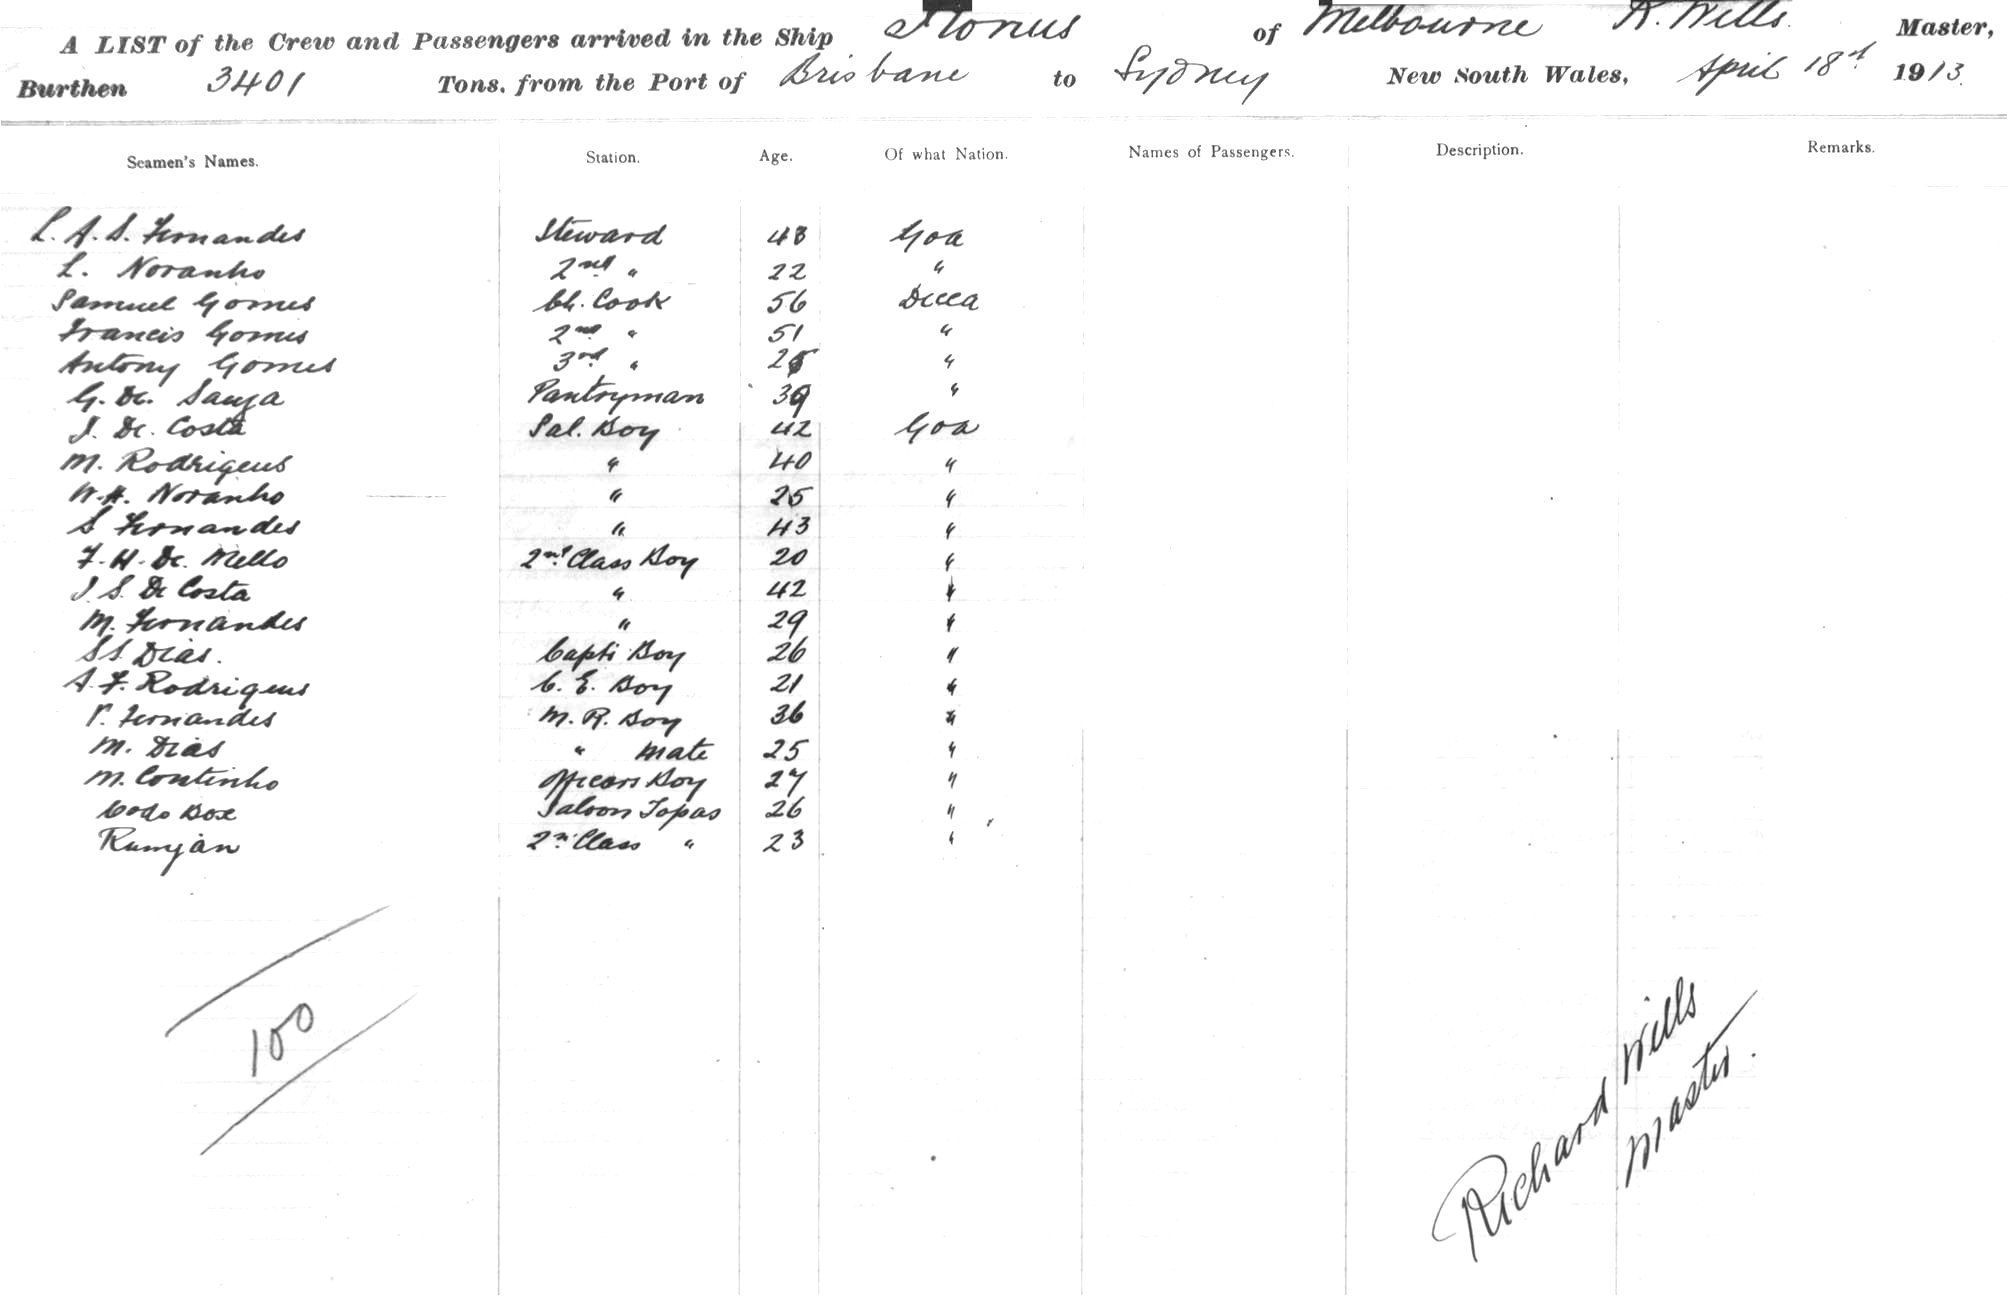 A LIST of the Crew and Passengers arrived in the Ship of Melbourne R. Wills. Master,
Burthen 3401 Tons, from the Port of Brisbane to Sydney New South Wales, April 18th 1913.
Seamen's Names. Station. Age. Of what Nation. Names of Passengers. Description. Remarks.
L. A. S. Fernandes Steward 43 Goa
L. Noranho 2nd " 22 "
Samuel Gomes Ch. Cook 56 Dicca
Francis Gomes 2nd " 51 "
Antony Gomes 3rd " 25 "
G. De. Sauza Pantryman 39 "
J. De. Costa Sal. Boy 42 Goa
M. Rodrigeus " 40 "
W. H. Noranho " 25 "
S Fernandes " 43 "
F. H. De. Mello 2nd Class Boy 20 "
J. S. De Costa " 42 "
M. Fernandes " 29 "
S S. Dias. Capts Boy 26 "
A. F. Rodrigeus C. E. Boy 21 "
P. Fernandes M. R. Boy 36 "
M. Dias " Mate 25 "
M. Coutinho Officers Boy 27 "
Codo Box Saloon Topas 26 "
Rumjan 2nd Class " 23 "
100
Richard Wills
Master.